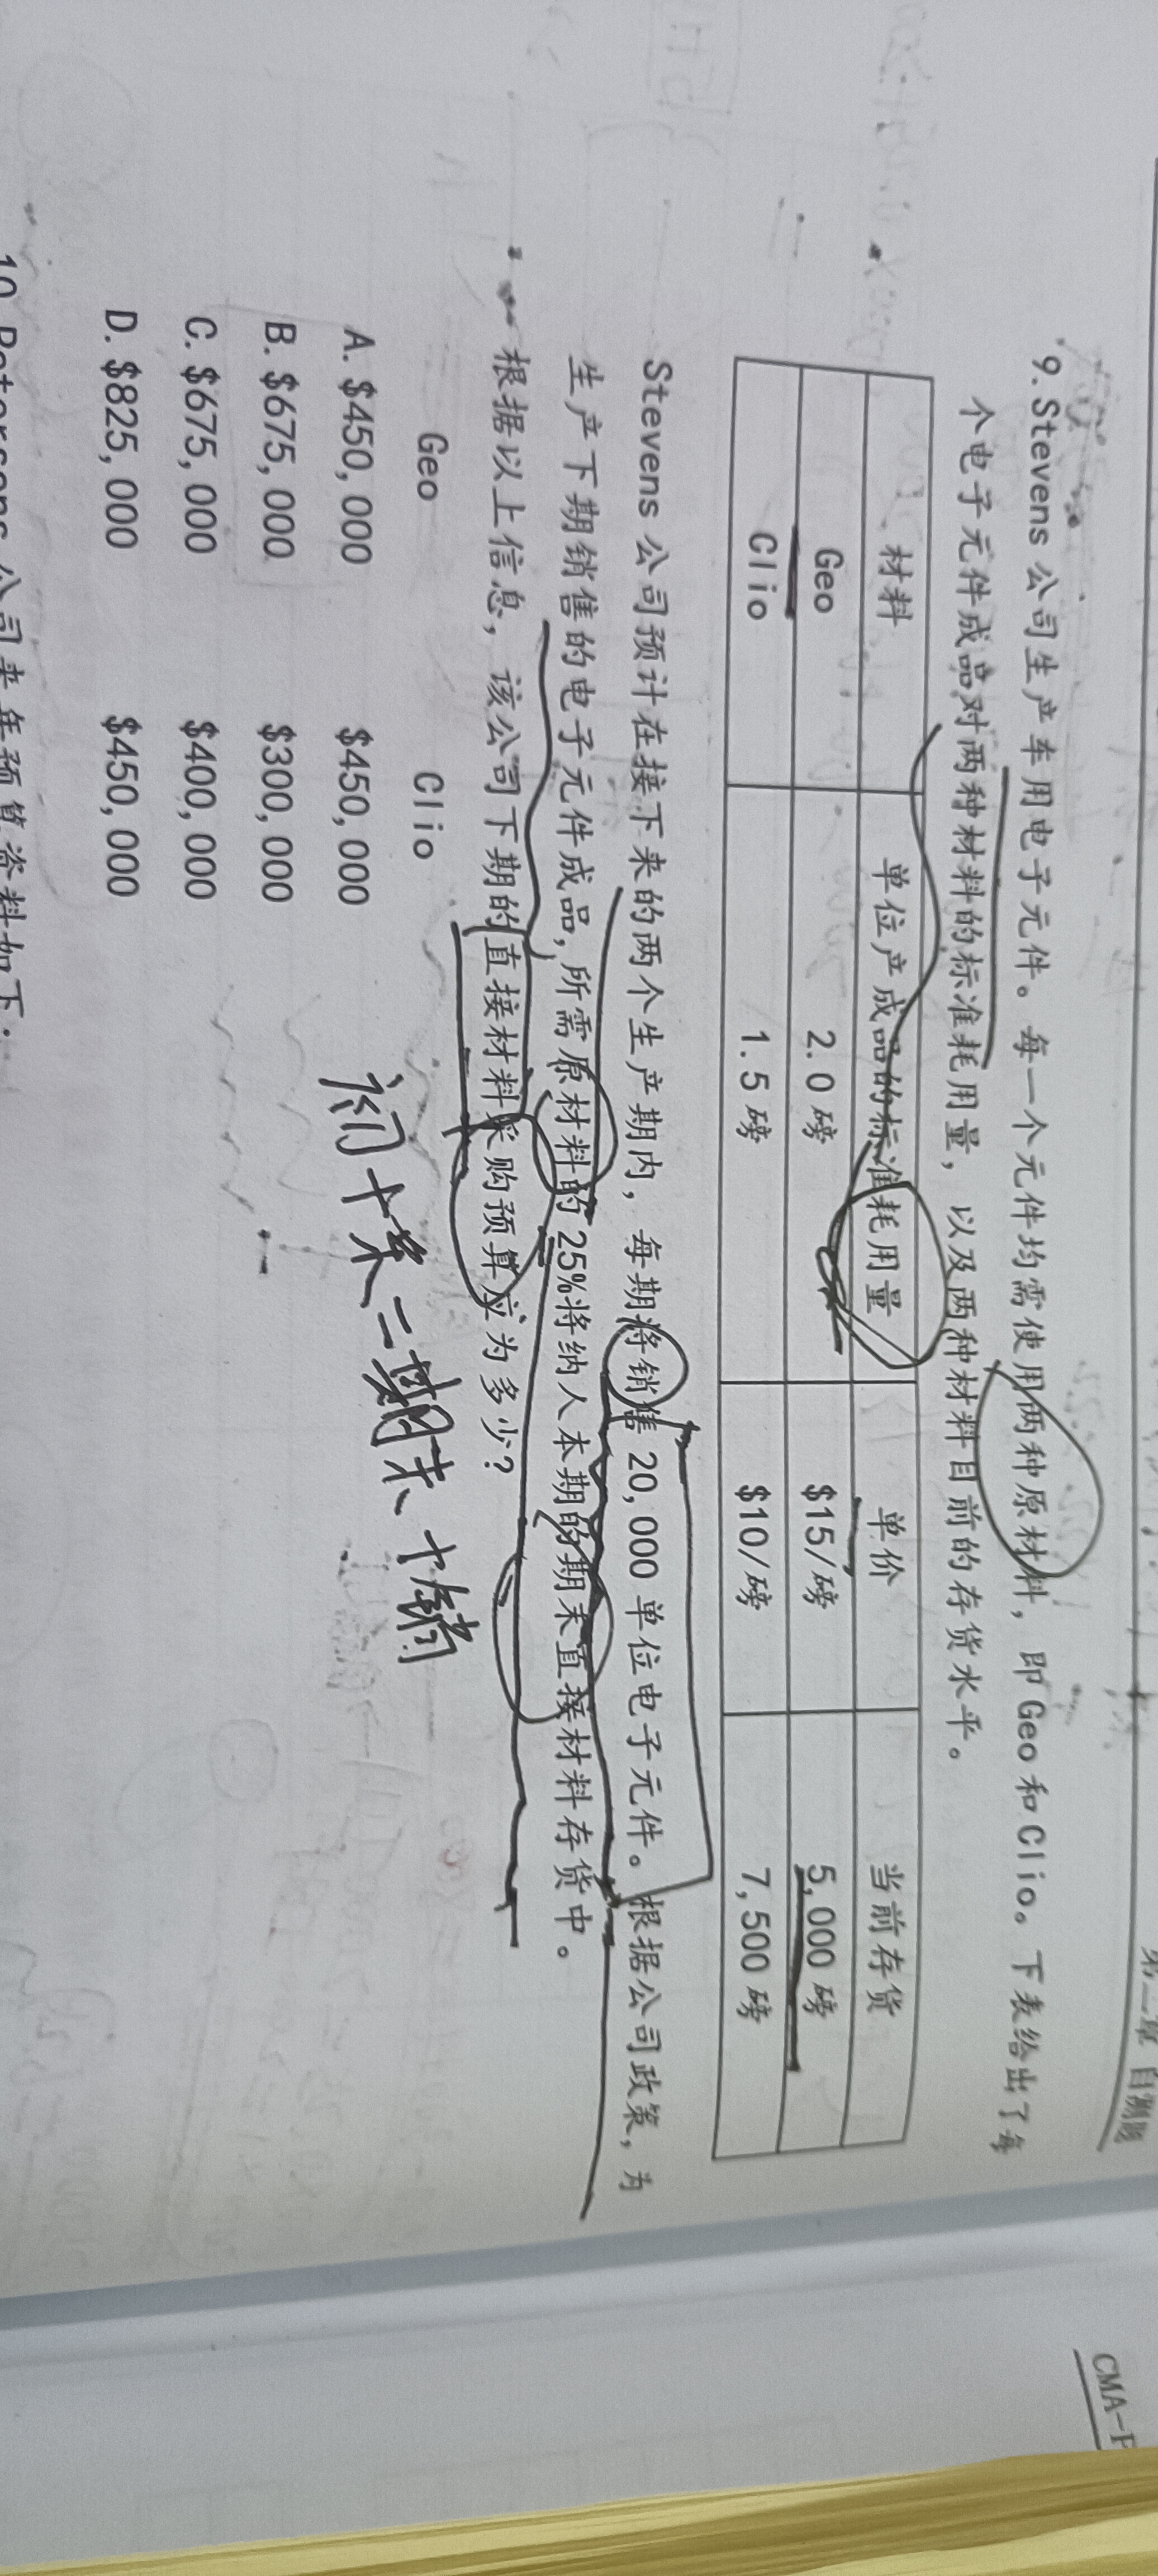 第二章 自测题
9. Stevens 公司生产车用电子元件。每一个元件均需使用两种原材料，即 Geo 和 Clio。下表给出了每
个电子元件成品对两种材料的标准耗用量，以及两种材料目前的存货水平。
材料 单位产成品的标准耗用量 单价 当前存货
Geo 2.0 磅 $15/磅 5,000 磅
Clio 1.5 磅 $10/磅 7,500 磅
Stevens 公司预计在接下来的两个生产期内，每期将销售 20,000 单位电子元件。根据公司政策，为
生产下期销售的电子元件成品，所需原材料的 25%将纳入本期的期末直接材料存货中。
根据以上信息，该公司下期的直接材料采购预算应为多少？
Geo Clio
A. $450,000 $450,000
B. $675,000 $300,000
C. $675,000 $400,000
D. $825,000 $450,000
初+采=期末+销
公司来年预算资料如下：
CMA-P